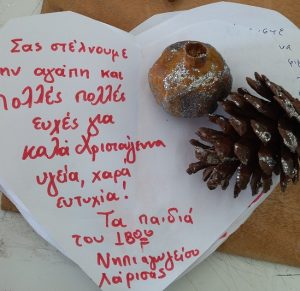 Σας στέλνουμε
την αγάπη και
πολλές πολλές
ευχές για
καλά Χριστούγεννα
υγεία, χαρά
ευτυχία!
Τα παιδιά
του 18ου
Νηπιαγωγείου
Λάρισας
να